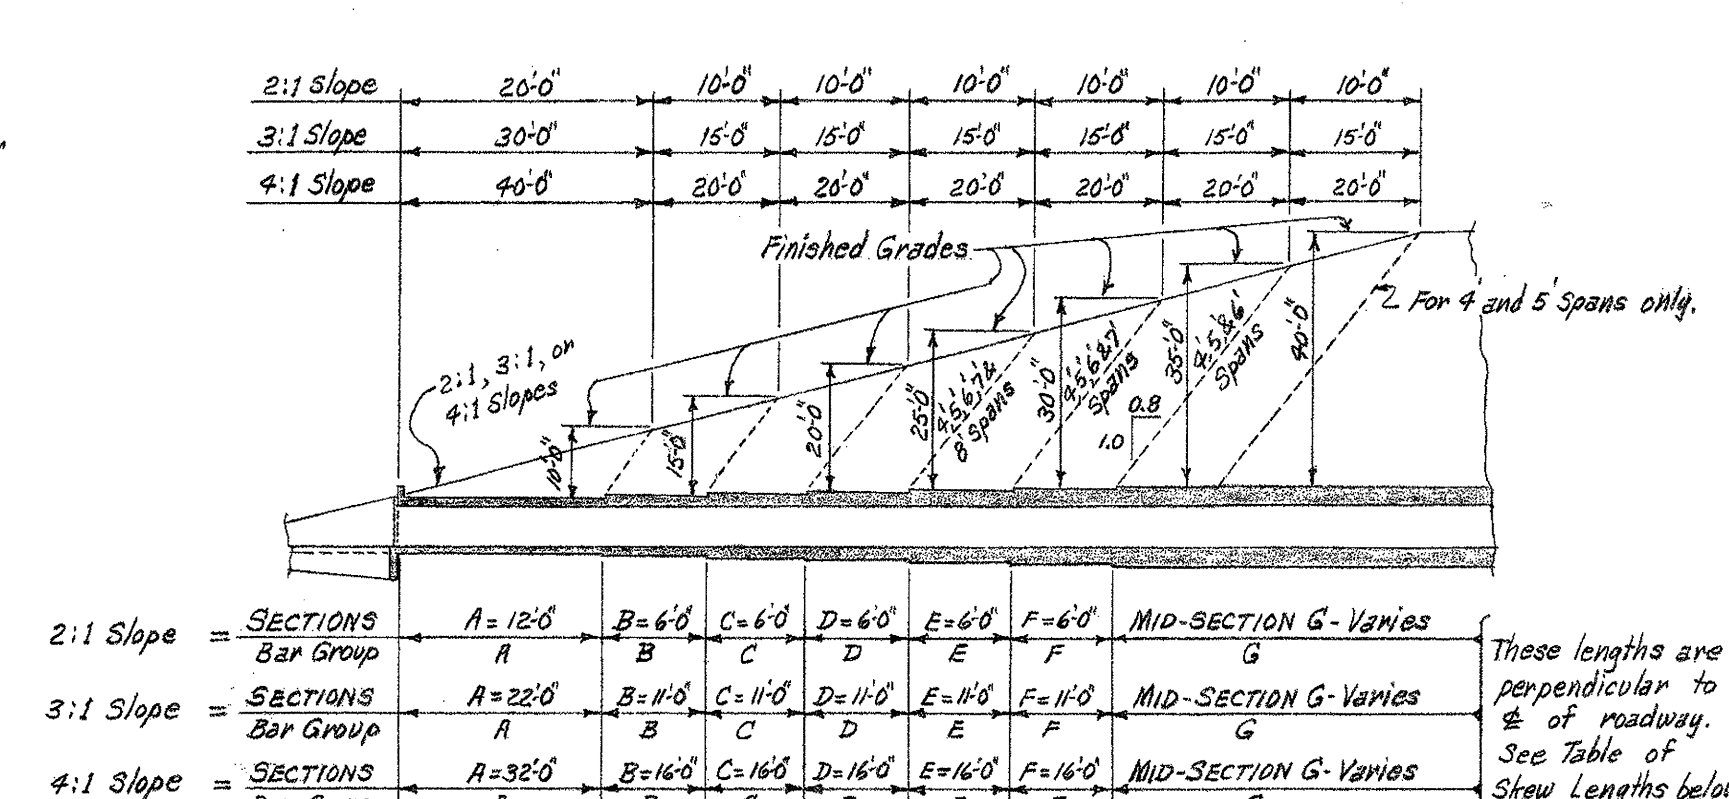 2:1 Slope 20'-0" 10'-0" 10'-0" 10'-0" 10'-0" 10'-0" 10'-0"
3:1 Slope 30'-0" 15'-0" 15'-0" 15'-0" 15'-0" 15'-0" 15'-0"
4:1 Slope 40'-0" 20'-0" 20'-0" 20'-0" 20'-0" 20'-0" 20'-0"
Finished Grades
For 4' and 5' Spans only.
2:1, 3:1, or
4:1 Slopes
10'-0"
15'-0"
20'-0"
25'-0"
4',5',6',7'&
8' Spans
30'-0"
4',5',6'&7'
Spans
0.8
1.0
35'-0"
4',5',&6'
Spans
40'-0"
2:1 Slope = SECTIONS A=12'-0" B=6'-0" C=6'-0" D=6'-0" E=6'-0" F=6'-0" MID-SECTION G-Varies
Bar Group A B C D E F G
3:1 Slope = SECTIONS A=22'-0" B=11'-0" C=11'-0" D=11'-0" E=11'-0" F=11'-0" MID-SECTION G-Varies
Bar Group A B C D E F G
4:1 Slope = SECTIONS A=32'-0" B=16'-0" C=16'-0" D=16'-0" E=16'-0" F=16'-0" MID-SECTION G-Varies
These lengths are
perpendicular to
℄ of roadway.
See Table of
Skew Lengths